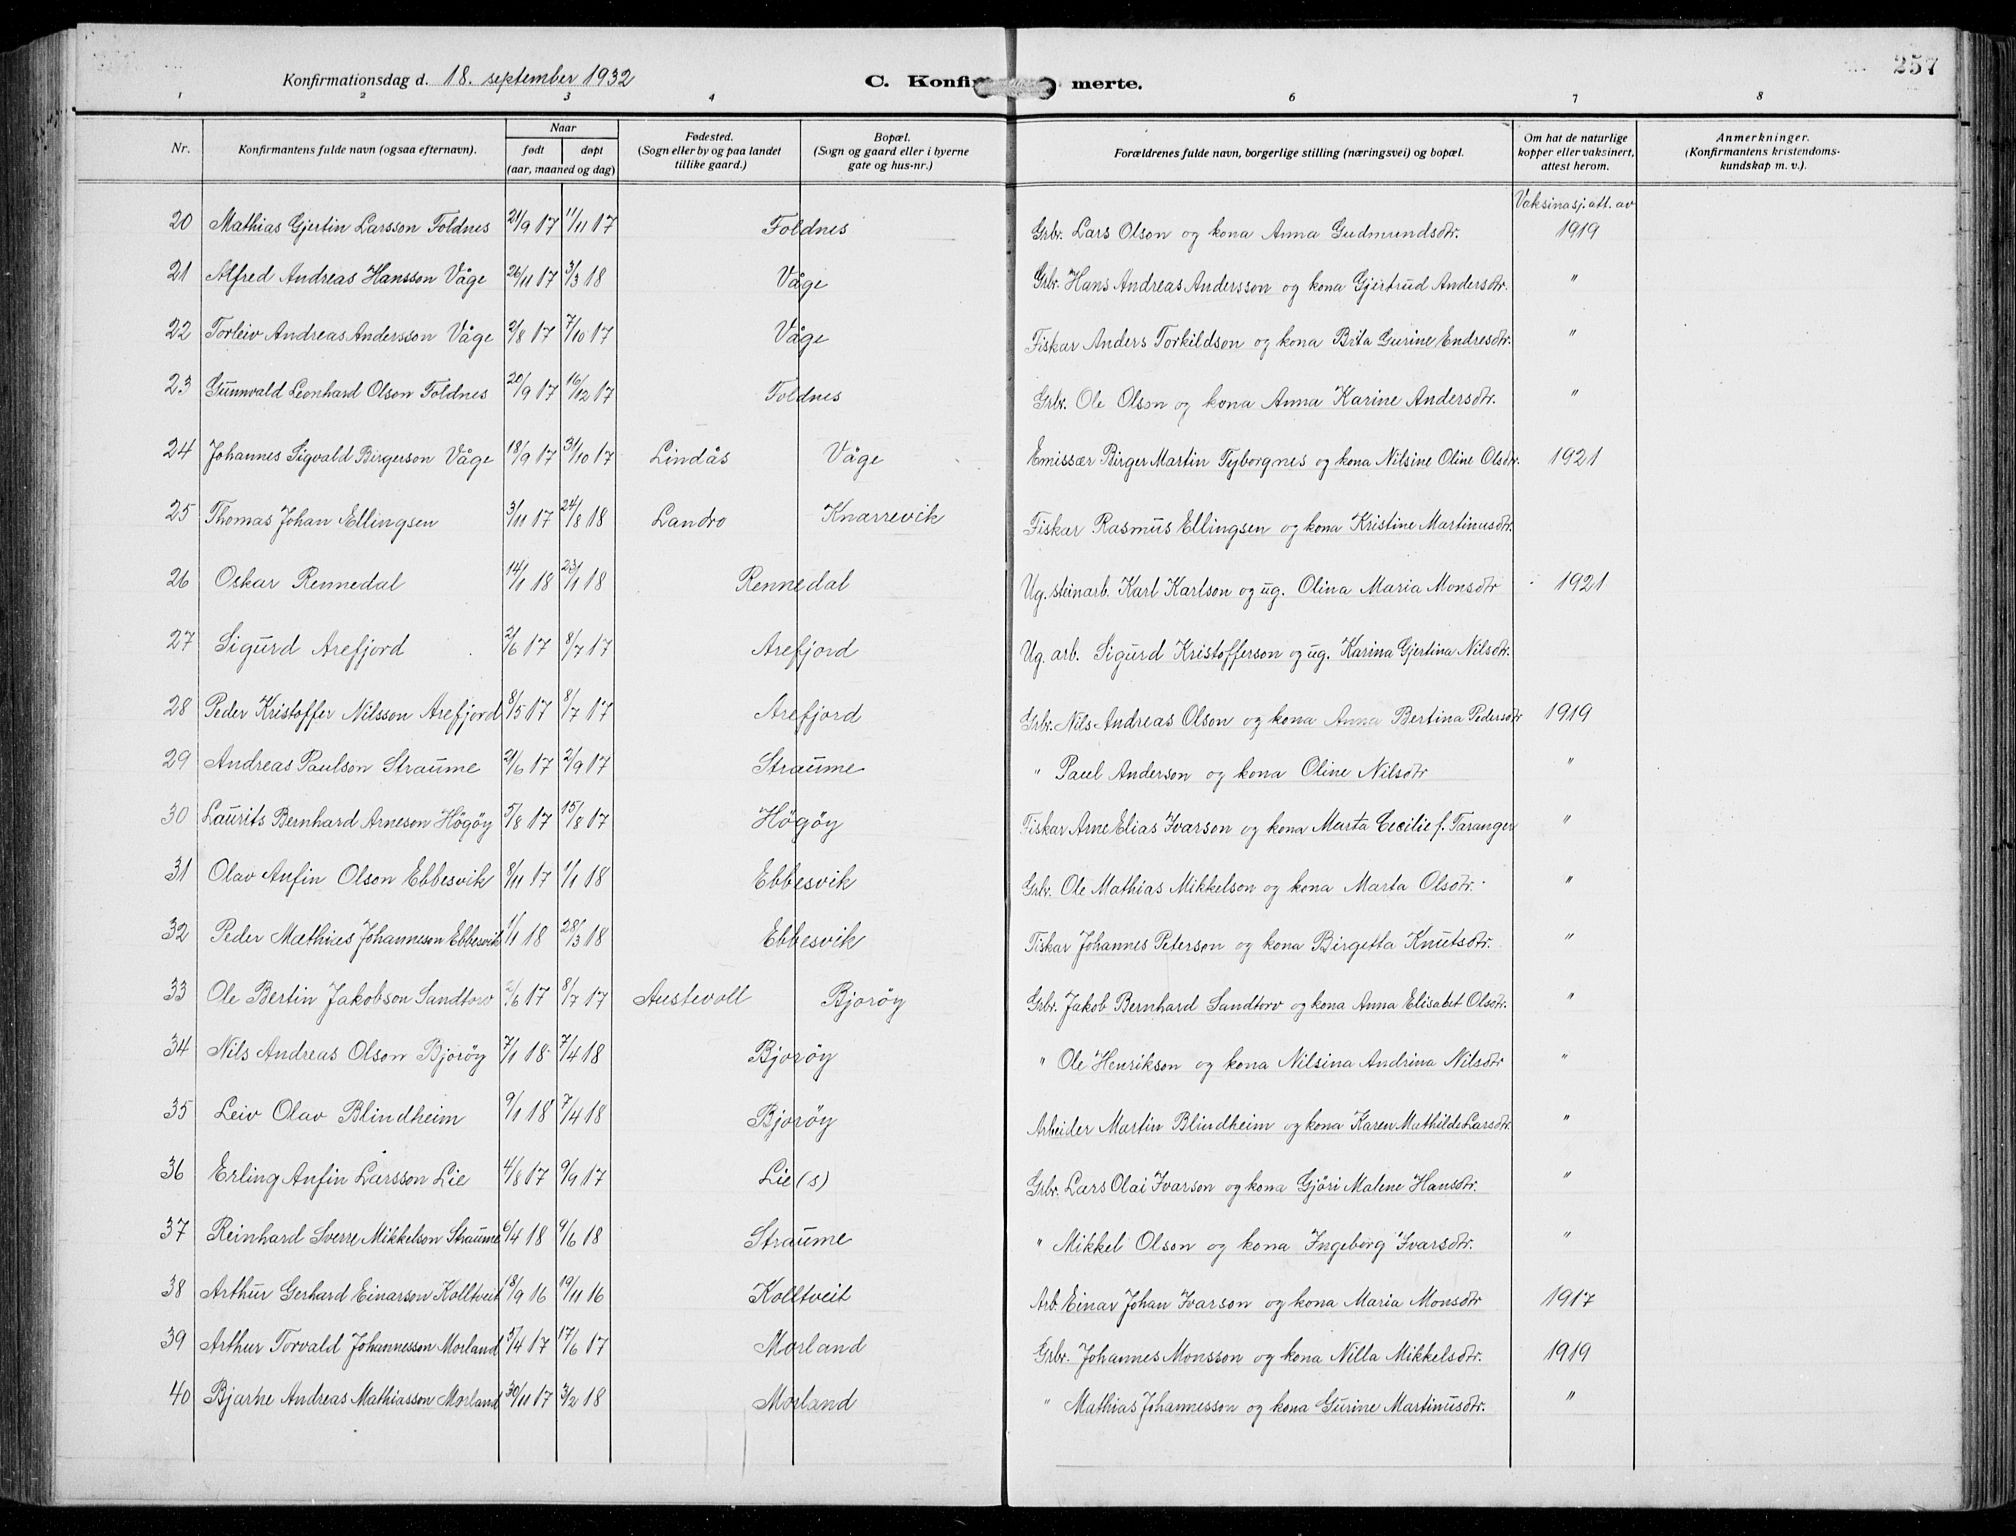 257
Konfirmationsdag d. 18. september 1932 C. Konfirmerte.
1 2 3 4 6 7 8
Nr. Konfirmantens fulde navn (ogsaa efternavn). Naar født døpt (aar, maaned og dag) Fødested. (Sogn eller by og paa landet tillike gaard.) Bopæl. (Sogn og gaard eller i byerne gate og hus-nr.) Forældrenes fulde navn, borgerlige stilling (næringsvei) og bopæl. Om hat de naturlige kopper eller vaksinert, attest herom. Anmerkninger. (Konfirmantens kristendoms-kundskap m. v.).
Vaksinasj. att. av
20 Mathias Gjertin Larsson Foldnes 21/9 17 11/11 17 Foldnes Grbr. Lars Olson og kona Anna Gudmundsdtr. 1919
21 Alfred Andreas Hansson Våge 26/11 17 3/3 18 Våge Grbr. Hans Andreas Andersson og kona Gjertrud Andersdtr. "
22 Torleiv Andreas Andersson Våge 2/8 17 7/10 17 Våge Fiskar Anders Torkildson og kona Brita Gurine Endresdtr. "
23 Gunnvald Leonhard Olson Foldnes 20/9 17 16/12 17 Foldnes Grbr. Ole Olson og kona Anna Karine Andersdtr. "
24 Johannes Sigvald Birgerson Våge 18/9 17 31/10 17 Lindås Våge Emissær Birger Martin Tyborgnes og kona Nilsine Oline Olsdtr. 1921
25 Thomas Johan Ellingsen 3/11 17 24/8 18 Landro Knarrevik Fiskar Rasmus Ellingsen og kona Kristine Martinusdtr.
26 Oskar Rennedal 14/1 18 23/1 18 Rennedal Ug. steinarb. Karl Karlson og ug. Olina Maria Monsdtr 1921
27 Sigurd Arefjord 2/6 17 8/7 17 Arefjord Ug. arb. Sigurd Kristofferson og ug. Karina Gjertina Nilsdtr.
28 Peder Kristoffer Nilsson Arefjord 8/5 17 8/7 17 Arefjord Grbr. Nils Andreas Olson og kona Anna Bertina Pedersdtr 1919
29 Andreas Paulson Straume 21/6 17 2/9 17 Straume " Paul Anderson og kona Oline Nilsdtr "
30 Laurits Bernhard Arneson Högöy 5/8 17 15/8 17 Högöy Fiskar Arne Elias Ivarson og kona Marta Cecilie f. Taranger "
31 Olav Anfin Olson Ebbesvik 8/11 17 1/1 18 Ebbesvik Grbr. Ole Mathias Mikkelson og kona Marta Olsdtr. "
32 Peder Mathias Johanneson Ebbesvik 1/1 18 28/3 18 Ebbesvik Fiskar Johannes Peterson og kona Birgetta Knutsdtr. "
33 Ole Bertin Jakobson Sandtorv 2/6 17 8/7 17 Austevoll Bjoröy Grbr. Jakob Bernhard Sandtorv og kona Anna Elisabet Olsdtr. "
34 Nils Andreas Olson Bjoröy 7/1 18 7/4 18 Bjoröy " Ole Henrikson og kona Nilsina Andrina Nilsdtr "
35 Leiv Olav Blindheim 9/1 18 7/4 18 Bjoröy Arbeider Martin Blindheim og kona Karen Mathilde Larsdtr. "
36 Erling Anfin Larsson Lie 4/8 17 9/9 17 Lie (s) Grbr. Lars Olai Ivarson og kona Gjöri Malene Hansdtr. "
37 Reinhard Sverre Mikkelson Straume 6/4 18 9/6 18 Straume " Mikkel Olson og kona Ingeborg Ivarsdtr. "
38 Arthur Gerhard Einarson Kolltveit 18/9 16 19/11 16 Kolltveit Arb. Einar Johan Ivarson og kona Maria Monsdtr 1917
39 Arthur Torvald Johannesson Morland 5/4 17 17/6 17 Morland Grbr. Johannes Monsson og kona Nilla Mikkelsdtr. 1919
40 Bjarne Andreas Mathiasson Morland 30/11 17 3/2 18 Morland " Mathias Johannesson og kona Gurine Martinusdtr. "